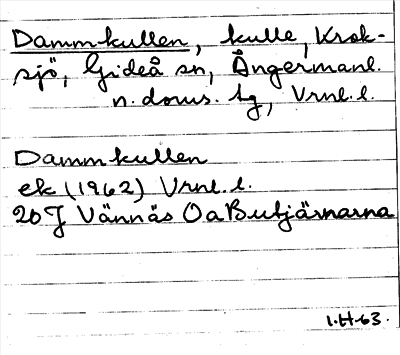 Dammkullen, kulle, Krok-
sjö, Gideå sn, Ångermanl.
n. dorus. tg, Vrnl. l.
Dammkullen
ek (1962) Vrnl. l.
20J Vännäs Oa Butjärnarna
I.H-63.